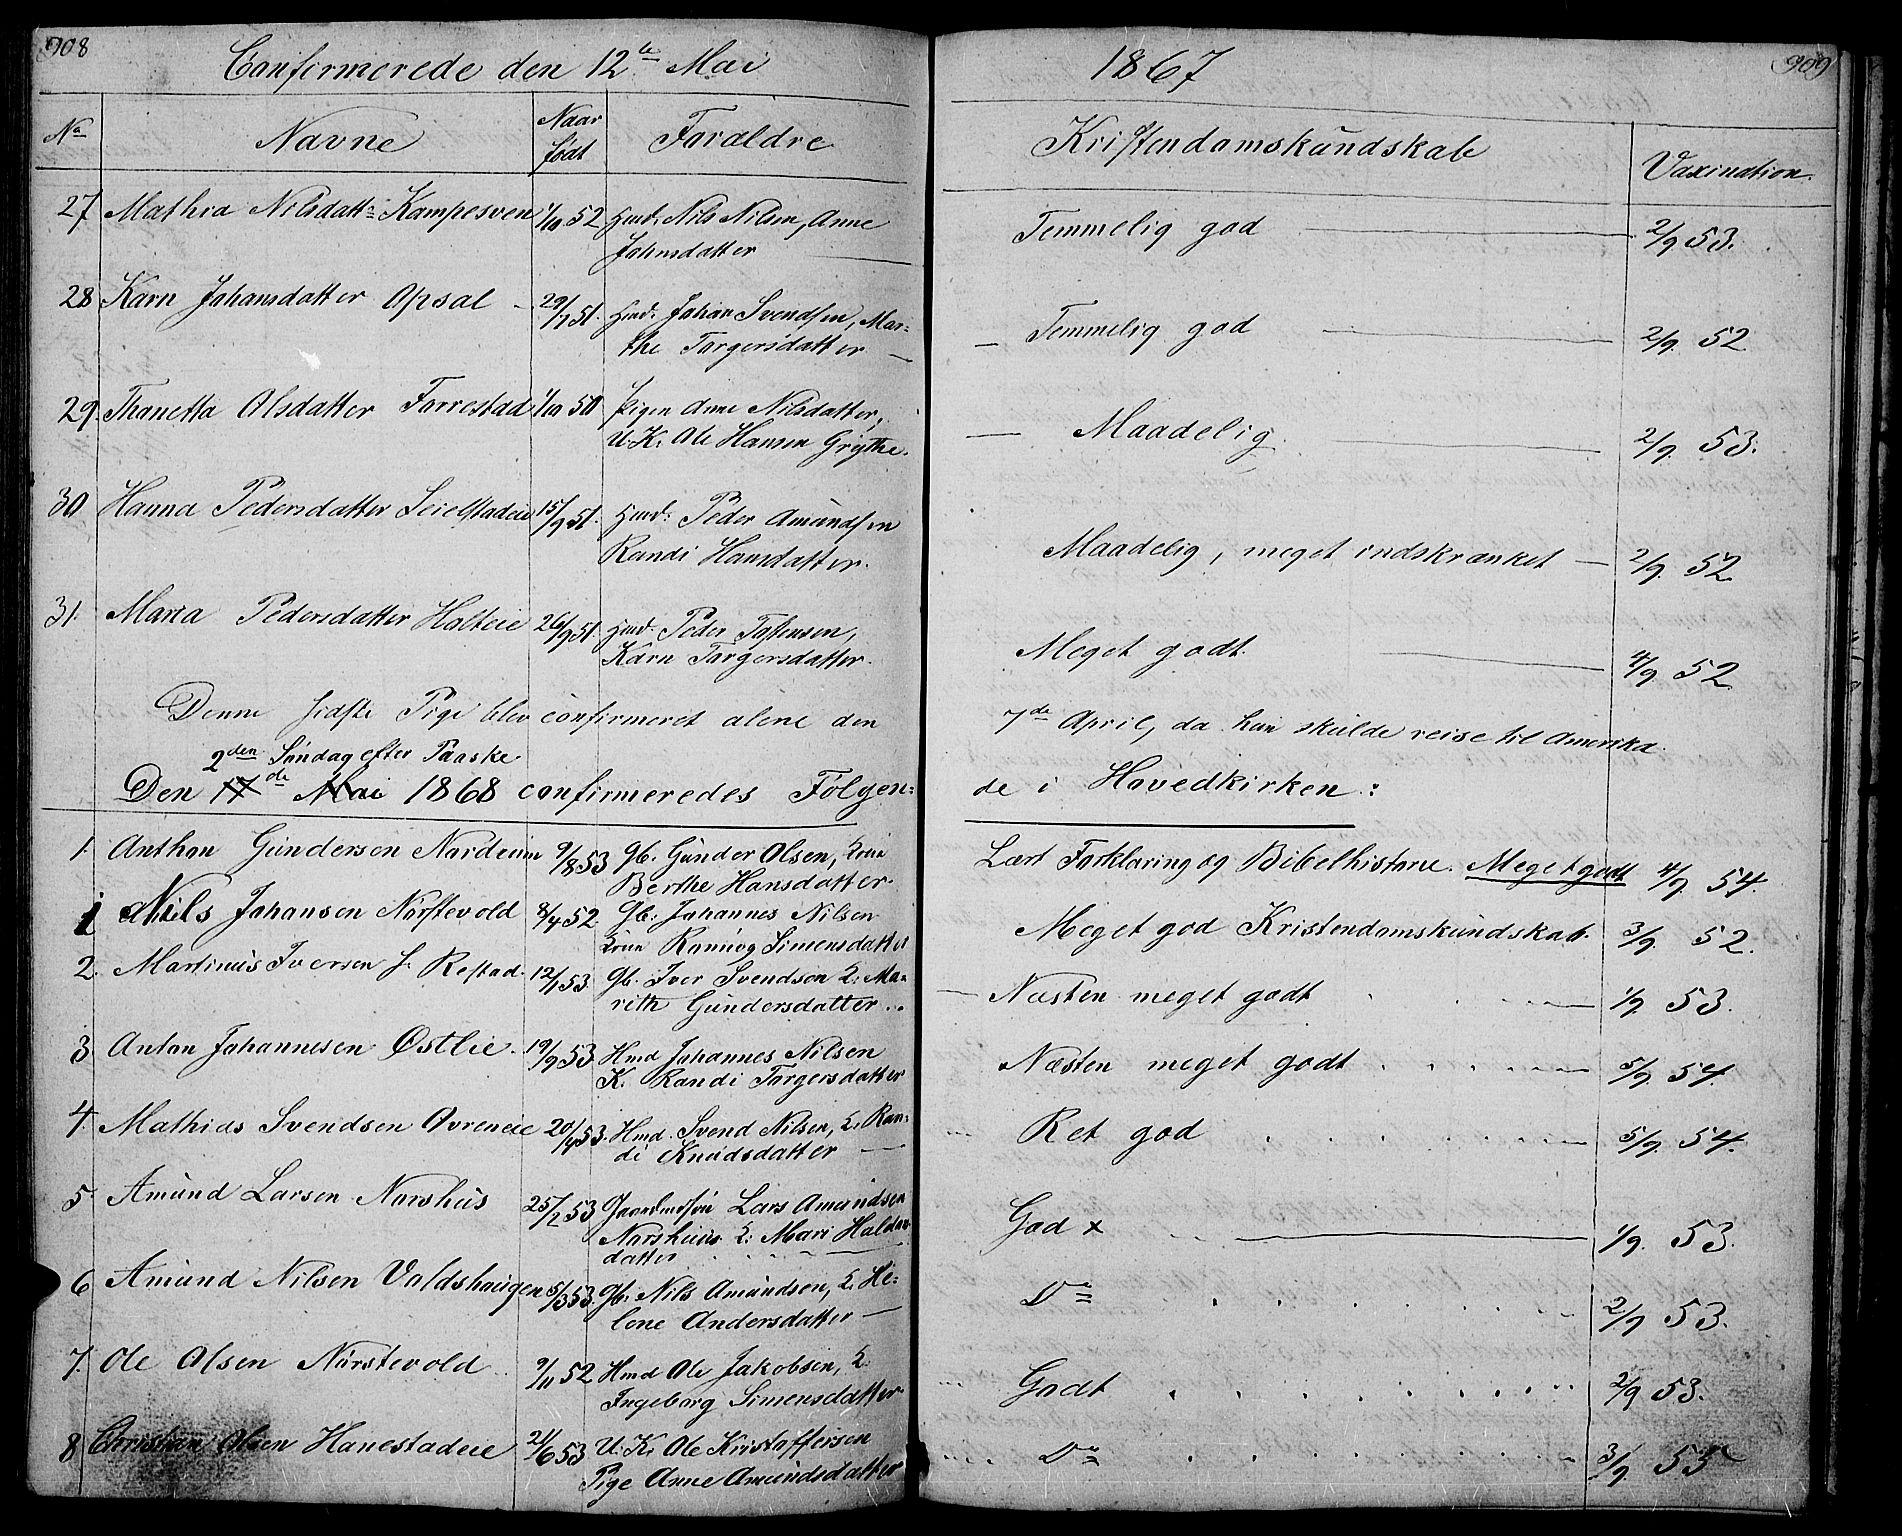 908
Confirmerede den 12te Mai
1867
909
No
Navne
Naar
født
Forældre
Kristendomskundskab
Vaxination
27 Mathia Nilsdattr Kampesven 1/10 52 Hmd: Nils Nilsen, Anne
Johnsdatter
Temmelig god 2/9 53.
28 Karn Johansdatter Opsal 29/7 51. Hmd. Johan Svendsen, Mar-
the Torgersdatter
Temmelig god 2/9. 52
29. Thonetta Olsdatter Forrestad 1/10 50 Pigen Anne Nilsdatter,
U.K. Ole Hansen Grythe.
Maadelig 2/9. 53.
30 Hanna Pedersdatter Seielstadeie 15/9 51. Hmd: Peder Amundsen
Randi Hansdatter.
Maadelig, meget indskrænket 2/9. 52
31. Maria Pedersdatter Holteie 26/9 51. Hmd. Peder Tostensen,
Karn Torgersdatter.
Meget godt. 4/9. 52
Denne sidste Pige blev confirmeret alene den
7de April, da hun skulde reise til Amerika
2den Søndag efter Paaske
Den 17de Mai 1868 confirmeredes Følgen=
de i Hovedkirken:
1. Anthon Gundersen Nordeim 9/8 53 Gb. Gunder Olsen, Kone
Berthe Hansdatter.
Lært Forklaring og Bibelhistorie. Meget godt 4/9 54.
1 Niels Johansen Nørstevold 8/4 52. Gb: Johannes Nilsen
Kone Rønnog Simensdatter
Meget god Kristendomskundskab. 3/9 52.
2. Martinus Iversen s. Restad. 12/1 53. Gb. Iver Svendsen K: Ma=
rith Gundersdatter
Næsten meget godt 1/9 53.
3. Anton Johannesen Østlie. 19/9 53. Hmd Johannes Nilsen
K. Randi Torgersdatter
Næsten meget godt 5/9 54.
4. Mathias Svendsen Øvreneie 20/4 53. Hmd. Svend Nilsen, K. Ran-
di Knudsdatter
Ret god 5/9. 54.
5. Amund Larsen Norshus 25/2 53 Lars Amundsen
Norshuus K: Mari Haldor
datter
God x 1/9. 53.
6 Amund Nilsen Valdshaugen 5/3 53. Gb: Nils Amundsen, K. He=
lene Andersdatter
Do 2/9 53.
7. Ole Olsen Nørstevold 9/11 52 Hmd Ole Jakobsen, K.
Ingeborg Simensdatter.
Godt 2/9 53.
8 Christian Olsen Hanestadeie 21/6 53 U.K. Ole Kristoffersen
Pige Anne Amundsdatter
Do 3/9. 55